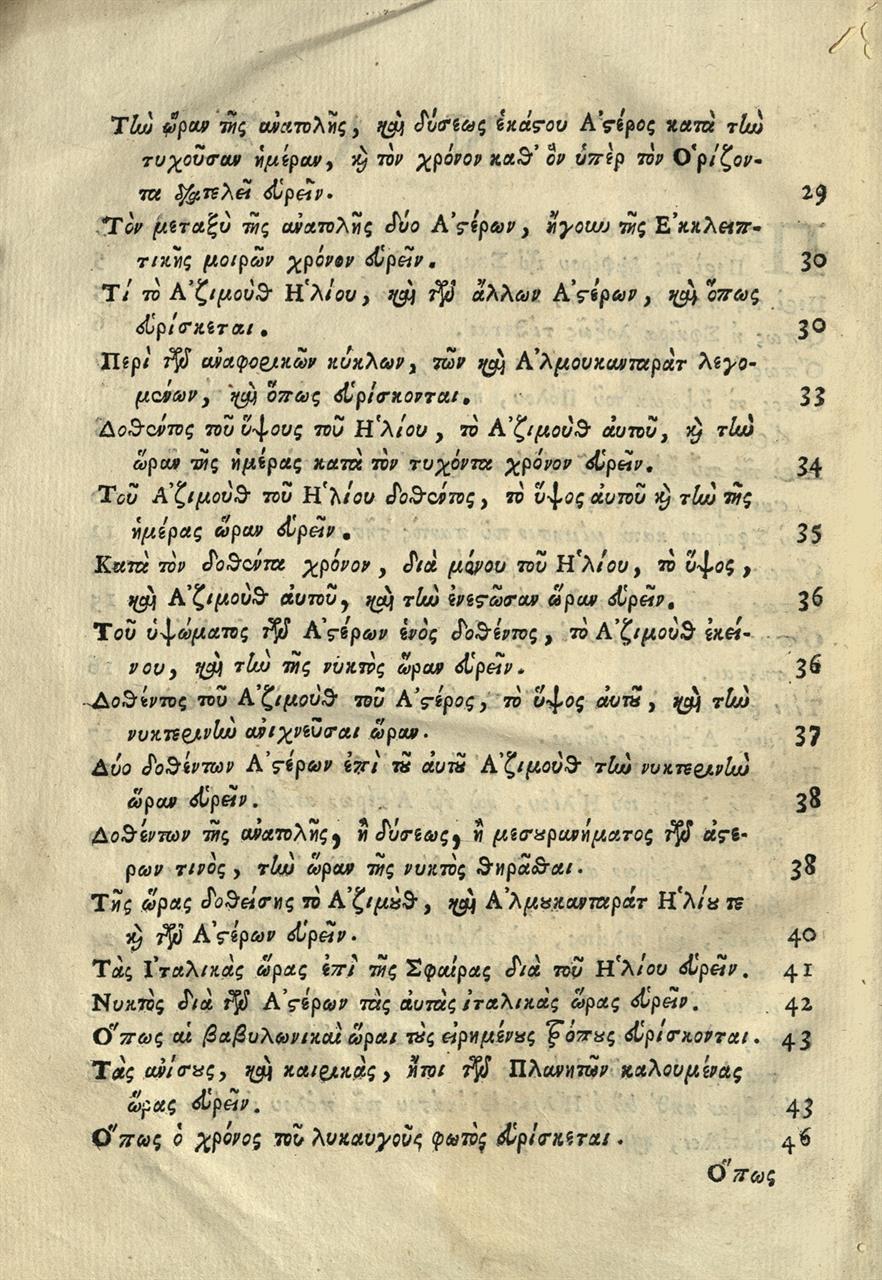 Τὴν ὥραν τῆς ἀνατολῆς, καὶ δύσεως ἑκάστου Ἀστέρος κατὰ τὴν
τυχοῦσαν ἡμέραν, καὶ τὸν χρόνον καθ' ὃν ὑπὲρ τὸν Ὁρίζον-
τα διατελεῖ εὑρεῖν. 29
Τὸν μεταξὺ τῆς ἀνατολῆς δύο Ἀστέρων, ἤγουν τῆς Ἐκκλειπ-
τικῆς μοιρῶν χρόνον εὑρεῖν. 30
Τί τὸ Ἀζιμοὺθ Ἡλίου, καὶ τῶν ἄλλων Ἀστέρων, καὶ ὅπως
εὑρίσκεται. 30
Περὶ τῶν ἀναφορικῶν κύκλων, τῶν καὶ Ἀλμουκανταρὰτ λεγο-
μένων, καὶ ὅπως εὑρίσκονται. 33
Δοθέντος τοῦ ὕψους τοῦ Ἡλίου, τὸ Ἀζιμοὺθ αὐτοῦ, καὶ τὴν
ὥραν τῆς ἡμέρας κατὰ τὸν τυχόντα χρόνον εὑρεῖν. 34
Τοῦ Ἀζιμοὺθ τοῦ Ἡλίου δοθέντος, τὸ ὕψος αὐτοῦ καὶ τὴν τῆς
ἡμέρας ὥραν εὑρεῖν. 35
Κατὰ τὸν δοθέντα χρόνον, διὰ μόνου τοῦ Ἡλίου, τὸ ὕψος,
καὶ Ἀζιμοὺθ αὐτοῦ, καὶ τὴν ἐνεστῶσαν ὥραν εὑρεῖν. 36
Τοῦ ὑψώματος τῶν Ἀστέρων ἑνὸς δοθέντος, τὸ Ἀζιμοὺθ ἐκεί-
νου, καὶ τὴν τῆς νυκτὸς ὥραν εὑρεῖν. 36
Δοθέντος τοῦ Ἀζιμοὺθ τοῦ Ἀστέρος, τὸ ὕψος αὐτοῦ, καὶ τὴν
νυκτερινὴν ἀνιχνεῦσαι ὥραν. 37
Δύο δοθέντων Ἀστέρων ἐπὶ τοῦ αὐτοῦ Ἀζιμοὺθ τὴν νυκτερινὴν
ὥραν εὑρεῖν. 38
Δοθέντων τῆς ἀνατολῆς, ἢ δύσεως, ἢ μεσουρανήματος τῶν ἀστέ-
ρων τινὸς, τὴν ὥραν τῆς νυκτὸς θηρᾶσθαι. 38
Τῆς ὥρας δοθείσης τὸ Ἀζιμοὺθ, καὶ Ἀλμουκανταρὰτ Ἡλίου τε
καὶ τῶν Ἀστέρων εὑρεῖν. 40
Τὰς Ἰταλικὰς ὥρας ἐπὶ τῆς Σφαίρας διὰ τοῦ Ἡλίου εὑρεῖν. 41
Νυκτὸς διὰ τῶν Ἀστέρων τὰς αὐτὰς ἰταλικὰς ὥρας εὑρεῖν. 42
Ὅπως αἱ βαβυλωνικαὶ ὧραι τοὺς εἰρημένους τρόπους εὑρίσκονται. 43
Τὰς ἀνίσους, καὶ καιρικὰς, ἤτοι τῶν Πλανητῶν καλουμένας
ὥρας εὑρεῖν. 43
Ὅπως ὁ χρόνος τοῦ λυκαυγοῦς φωτὸς εὑρίσκεται. 46
Ὅπως